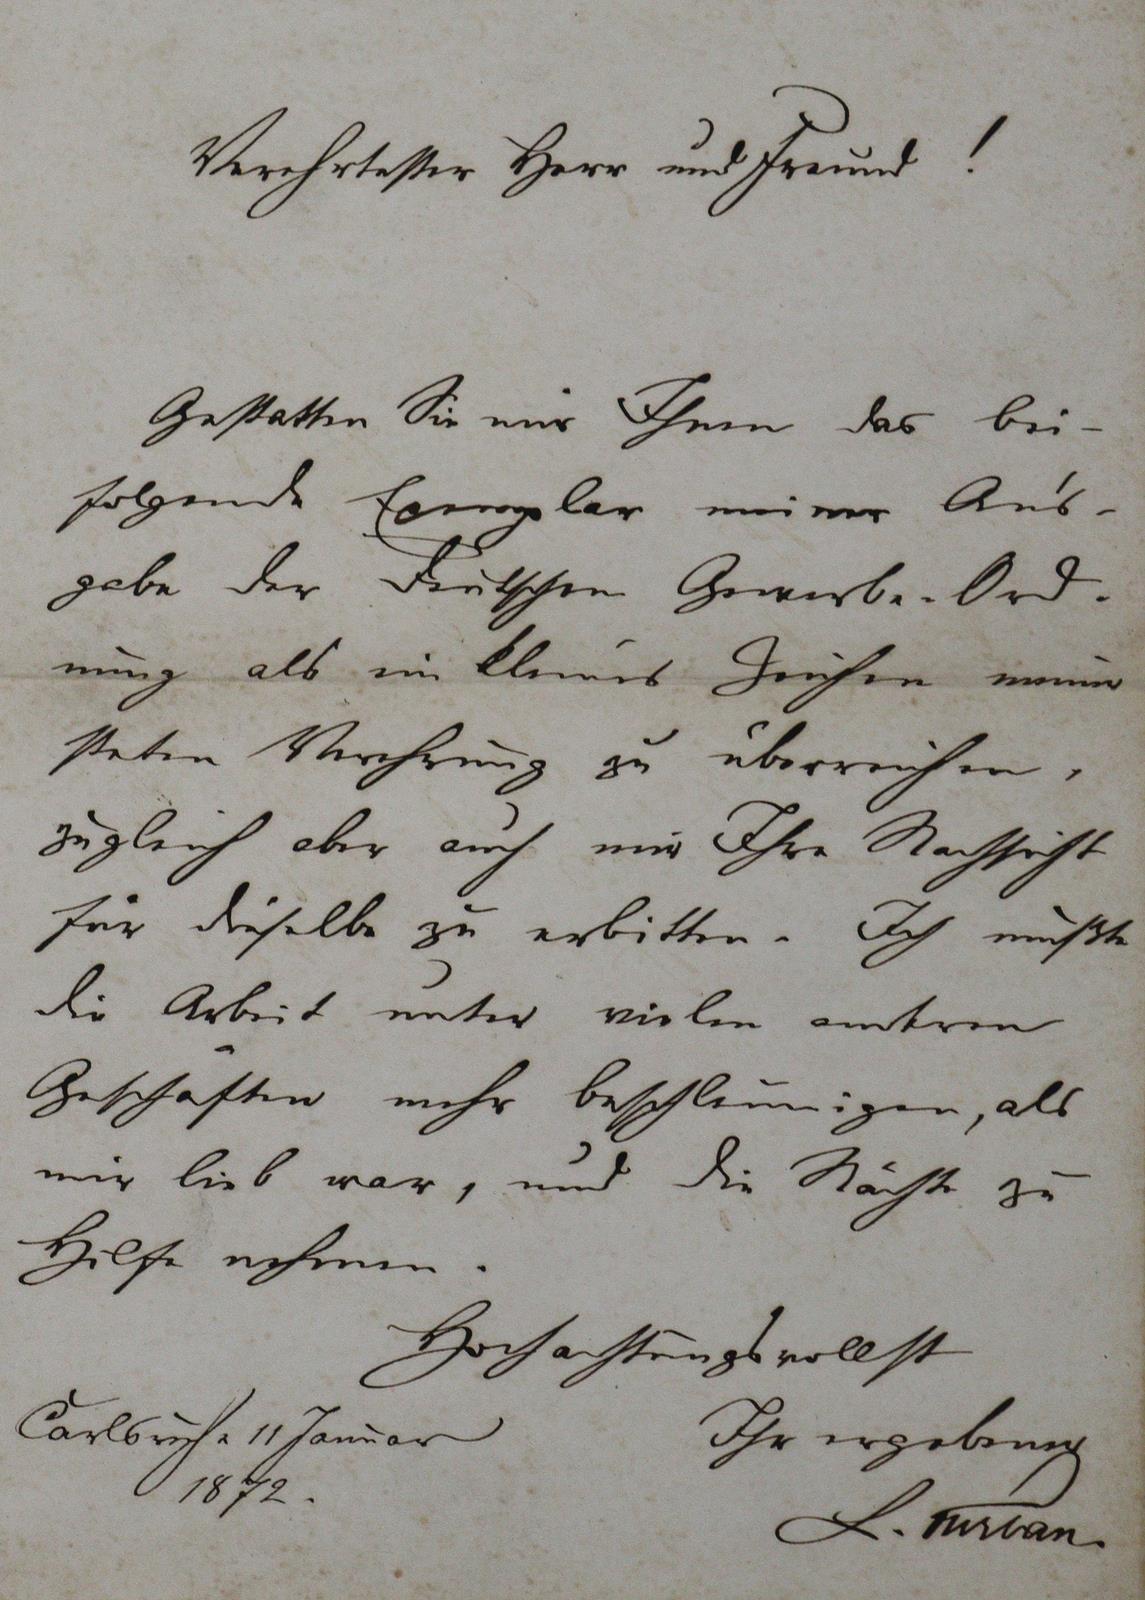 Verehrtester Herr und Freund!
Gestatten Sie mir Ihnen das bei-
folgende Exemplar meiner Aus-
gabe der Deutschen Gewerbe-Ord-
nung als ein kleines Zeichen meiner
steten Verehrung zu überreichen,
zugleich aber auch mir Ihre Nachsicht
für dieselbe zu erbitten. Ich mußte
die Arbeit unter vielen anderen
Geschäften mehr beschleunigen, als
mir lieb war, und die Nächte zu
Hilfe nehmen.
Hochachtungsvollst
Carlsruhe 11 Januar
1872.
Ihr ergebener
L. Turban.